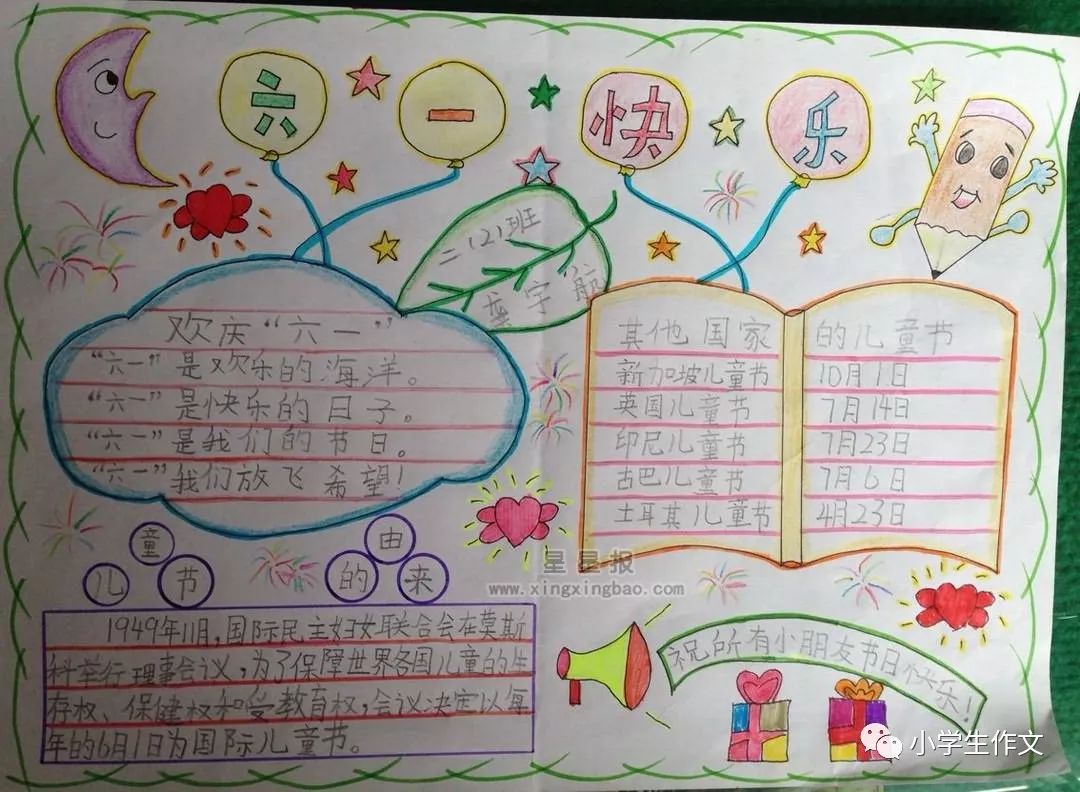 六一快乐
二(2)班
宇航
欢庆“六一”
“六一”是欢乐的海洋。
“六一”是快乐的日子。
“六一”是我们的节日。
“六一”我们放飞希望!
其他国家的儿童节
新加坡儿童节 10月1日
英国儿童节 7月14日
印尼儿童节 7月23日
古巴儿童节 7月6日
土耳其儿童节 4月23日
儿童节的由来
1949年11月,国际民主妇女联合会在莫斯
科举行理事会议,为了保障世界各国儿童的生
存权、保健权和受教育权,会议决定以每
年的6月1日为国际儿童节。
祝所有小朋友节日快乐!
星星报
www.xingxingbao.com
小学生作文